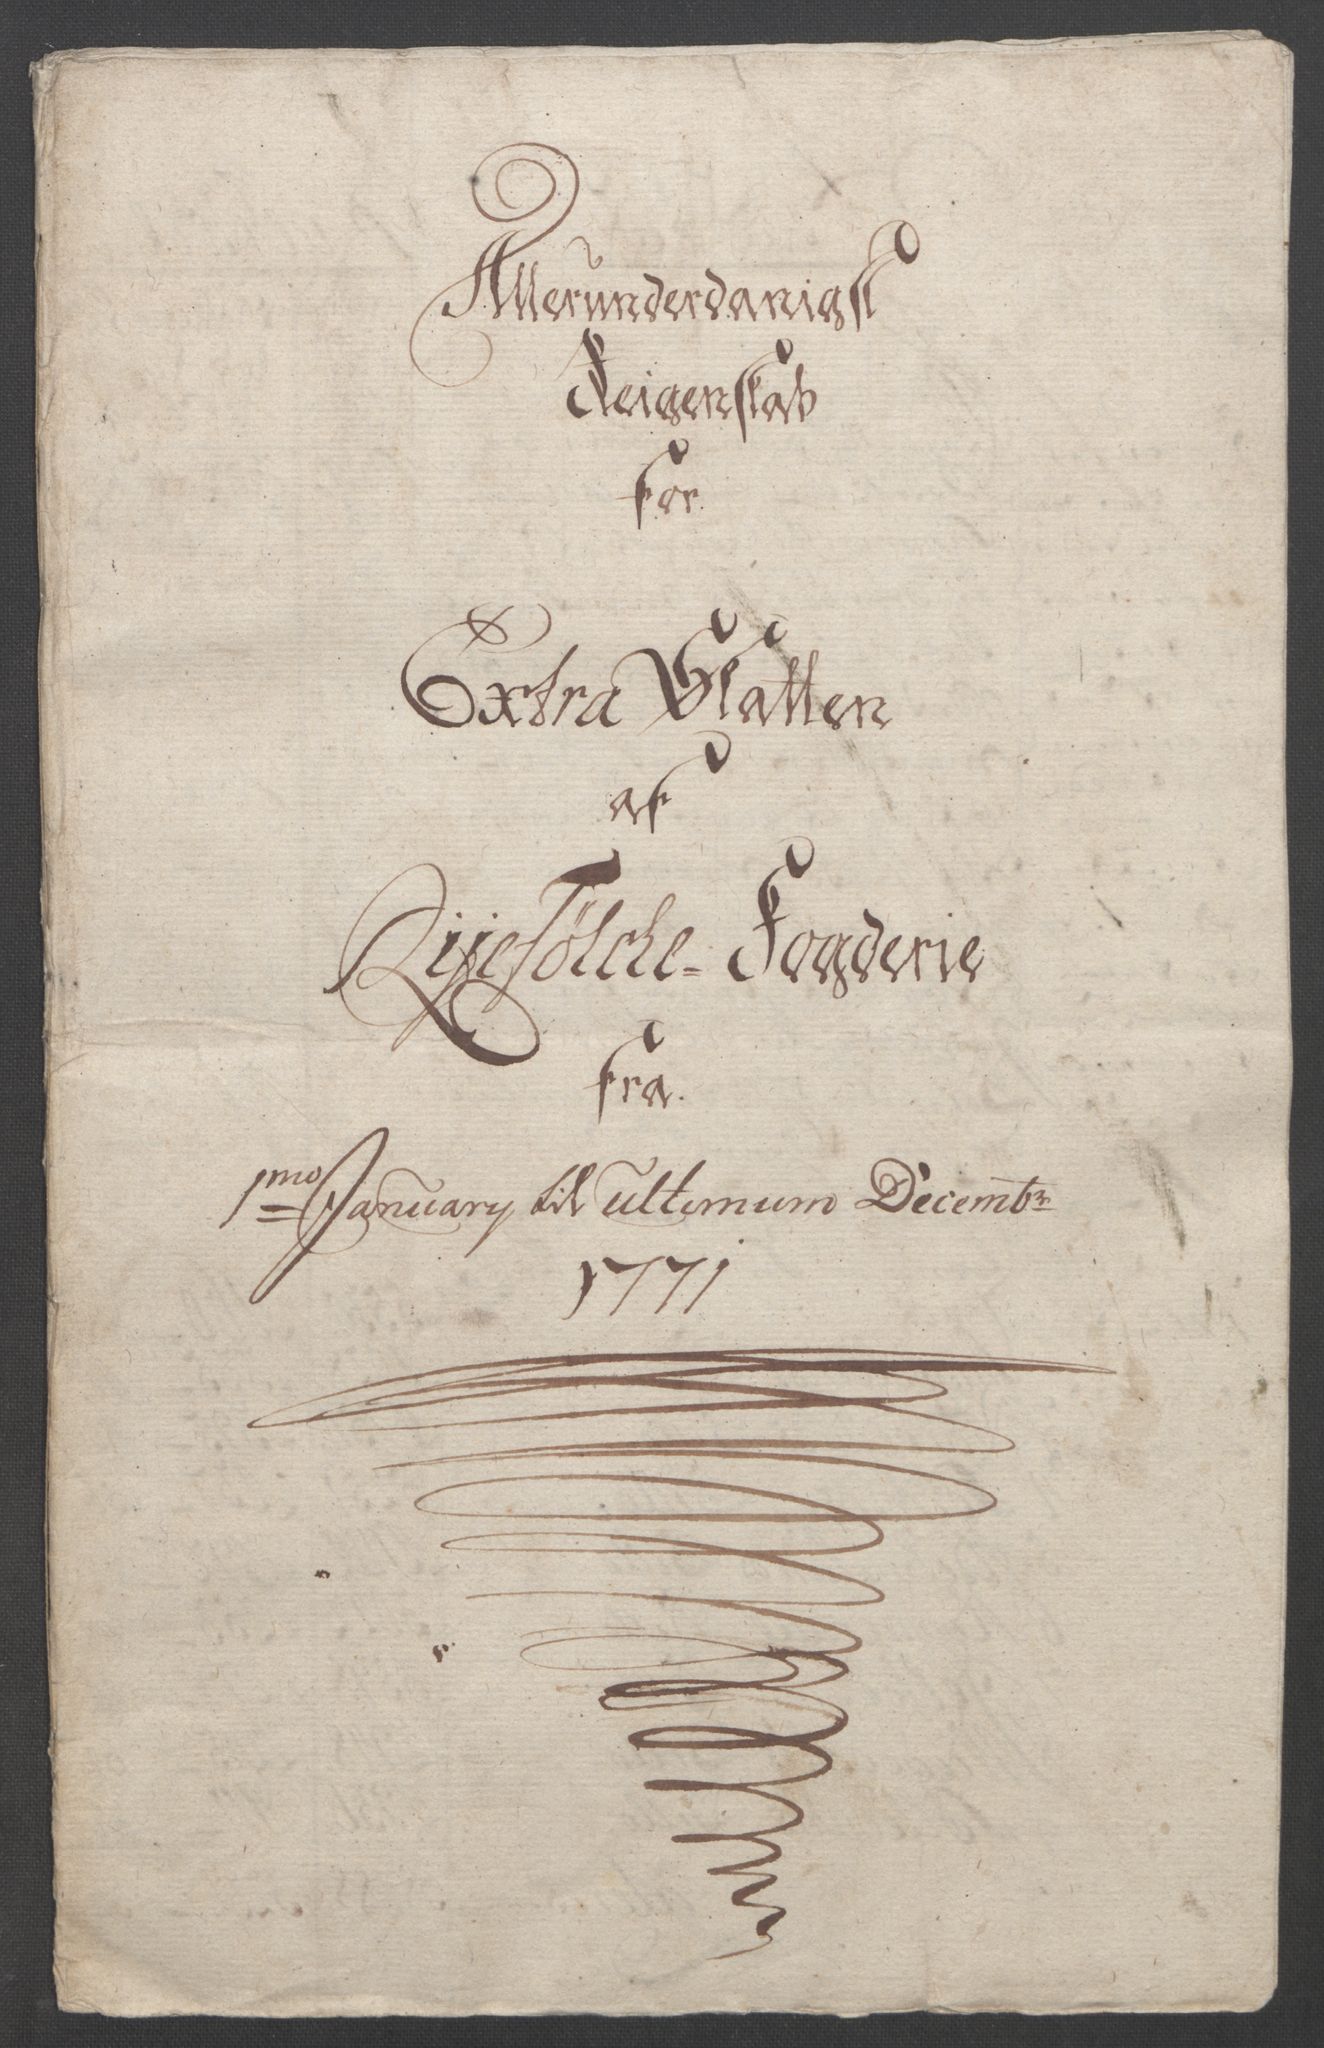 Allerunderdanigst
Reigenskab
for
Extra Skatten
af
Ryefölcke- Fogderie
fra
1mo January til ultimum Decembr
1771